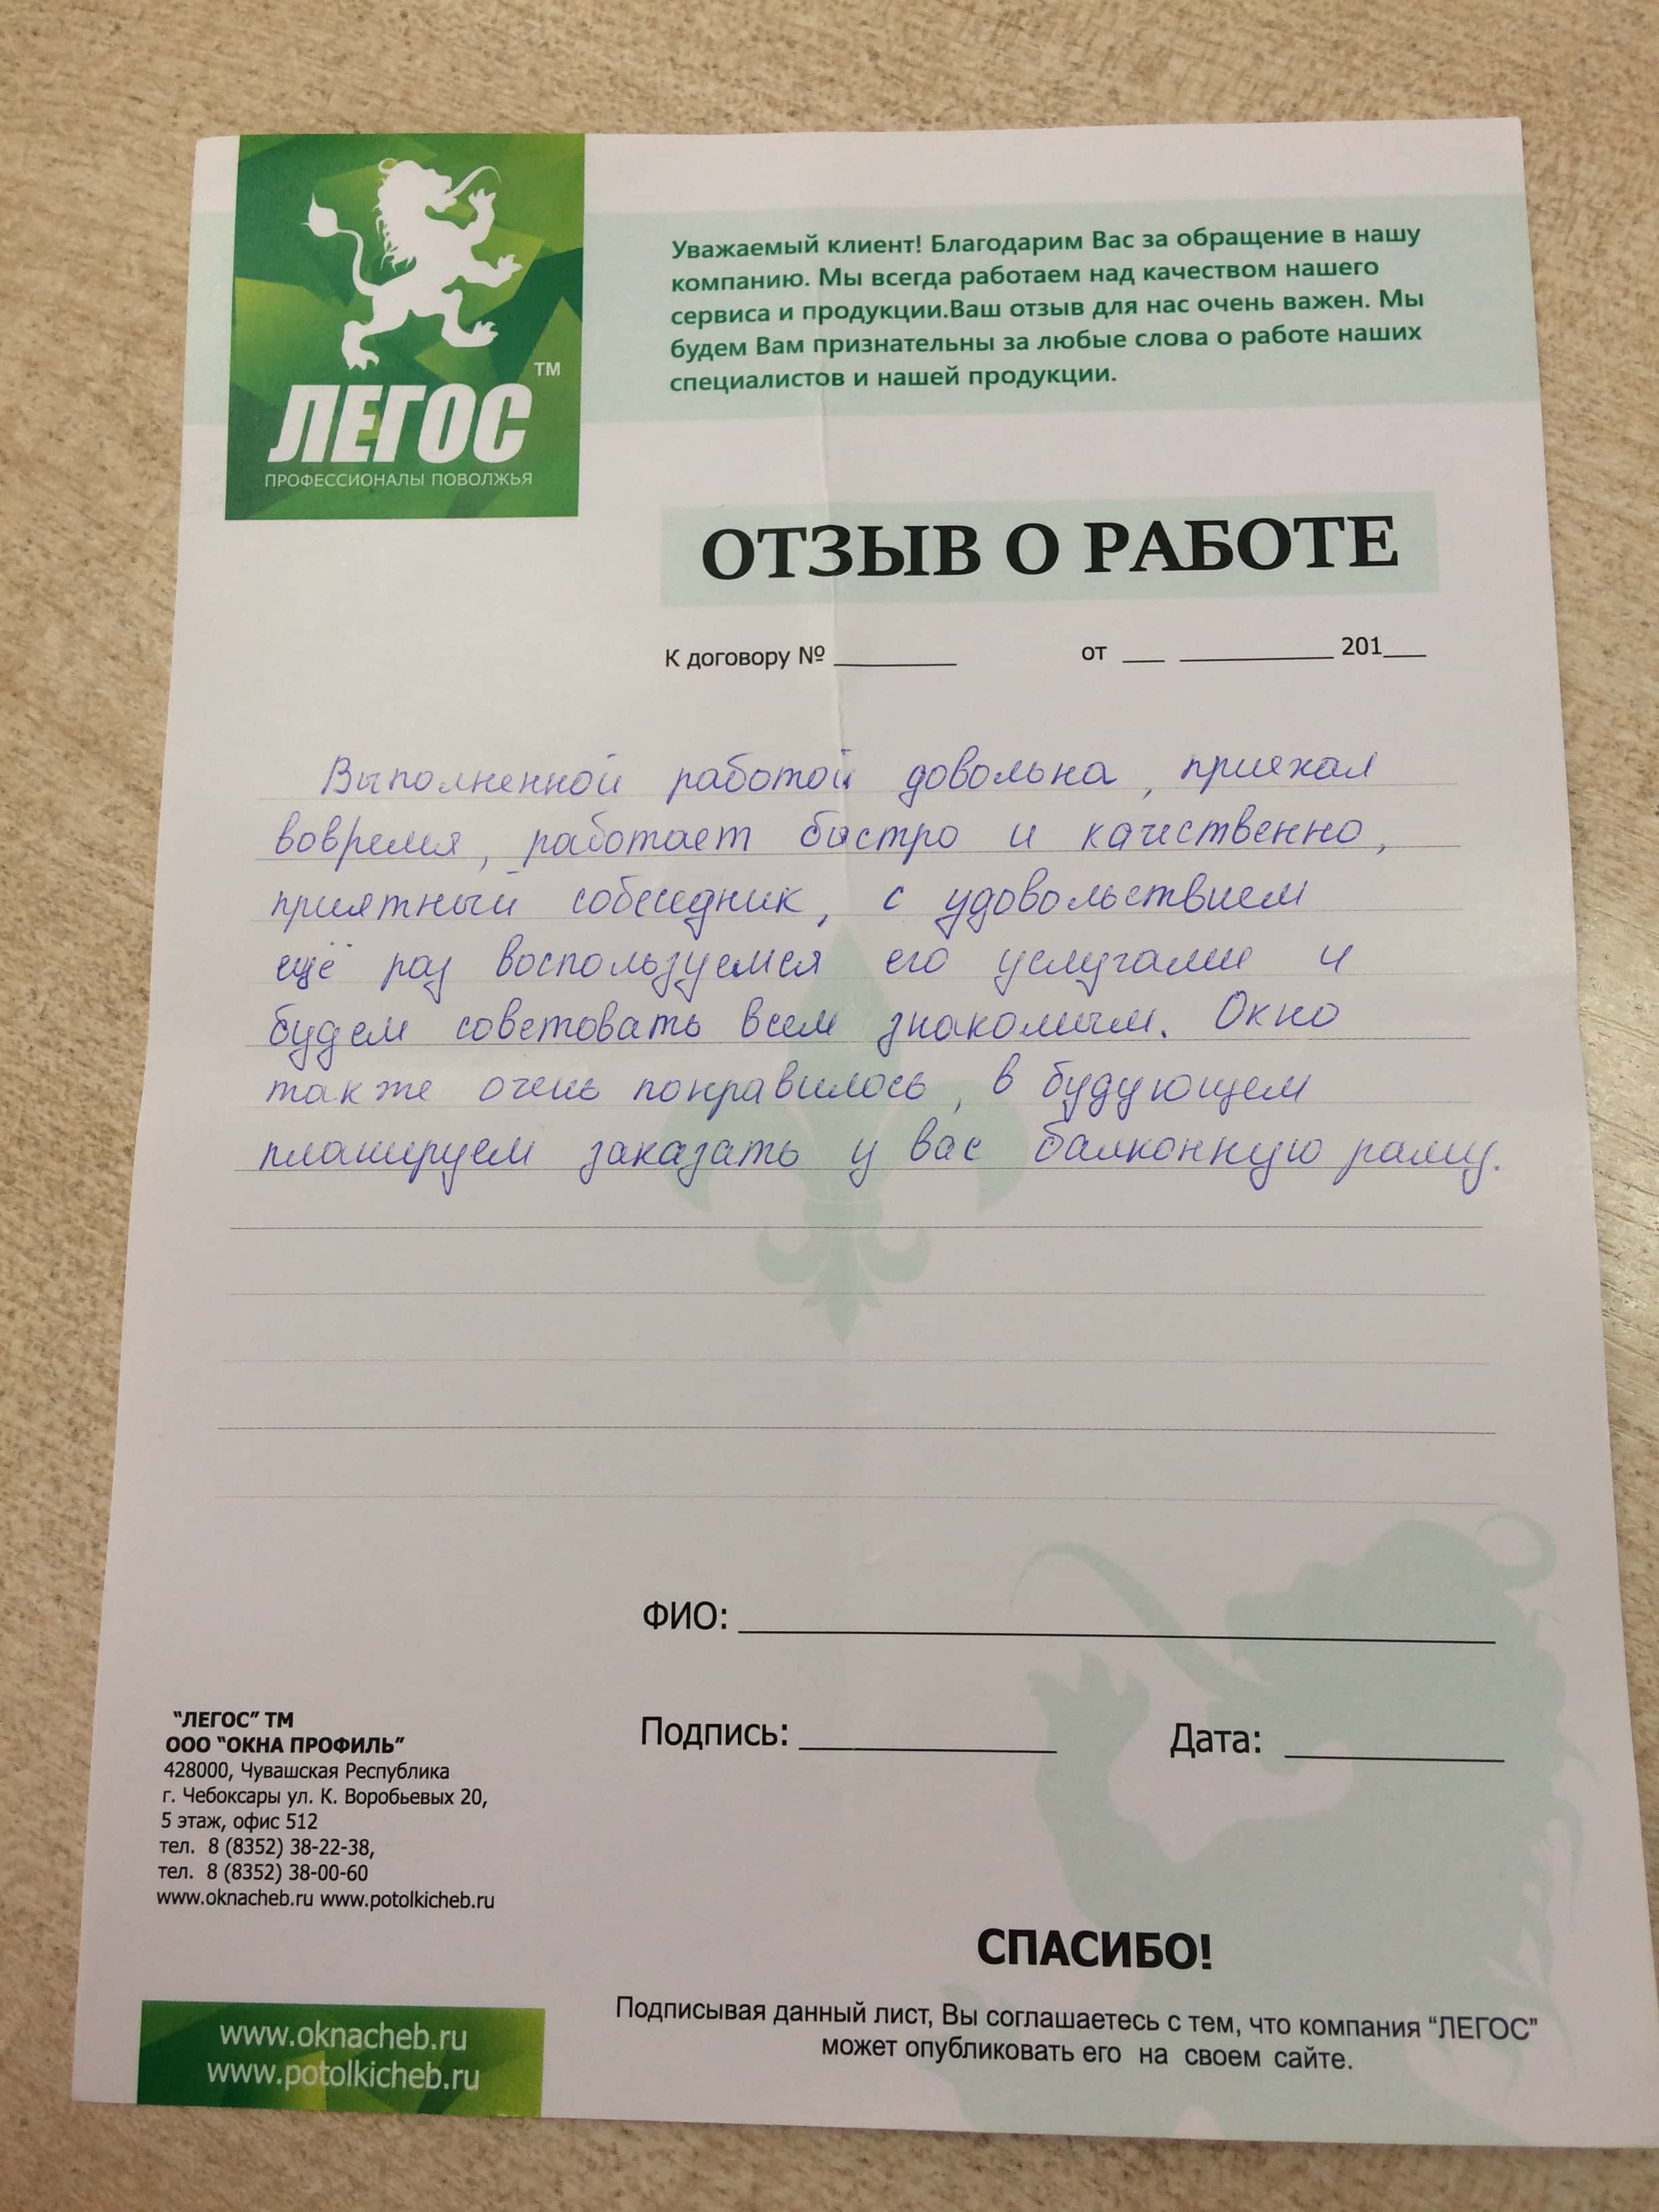 ЛЕГОС
TM
ПРОФЕССИОНАЛЫ ПОВОЛЖЬЯ
Уважаемый клиент! Благодарим Вас за обращение в нашу
компанию. Мы всегда работаем над качеством нашего
сервиса и продукции.Ваш отзыв для нас очень важен. Мы
будем Вам признательны за любые слова о работе наших
специалистов и нашей продукции.
ОТЗЫВ О РАБОТЕ
К договору № _________ от ___ ___________ 201___
Выполненной работой довольна, приехал
вовремя, работает быстро и качественно,
приятный собеседник, с удовольствием
ещё раз воспользуемся его услугами и
будем советовать всем знакомым. Окно
также очень понравилось, в будующем
планируем заказать у вас балконную раму.
ФИО:
Подпись: Дата:
"ЛЕГОС" ТМ
ООО "ОКНА ПРОФИЛЬ"
428000, Чувашская Республика
г. Чебоксары ул. К. Воробьевых 20,
5 этаж, офис 512
тел. 8 (8352) 38-22-38,
тел. 8 (8352) 38-00-60
www.oknacheb.ru www.potolkicheb.ru
СПАСИБО!
Подписывая данный лист, Вы соглашаетесь с тем, что компания "ЛЕГОС"
может опубликовать его на своем сайте.
www.oknacheb.ru
www.potolkicheb.ru